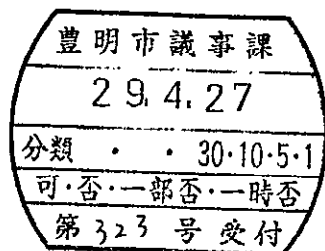 豊明市議事課
29.4.27
分類 ・ ・ 30・10・5・1
可・否・一部否・一時否
第323号受付